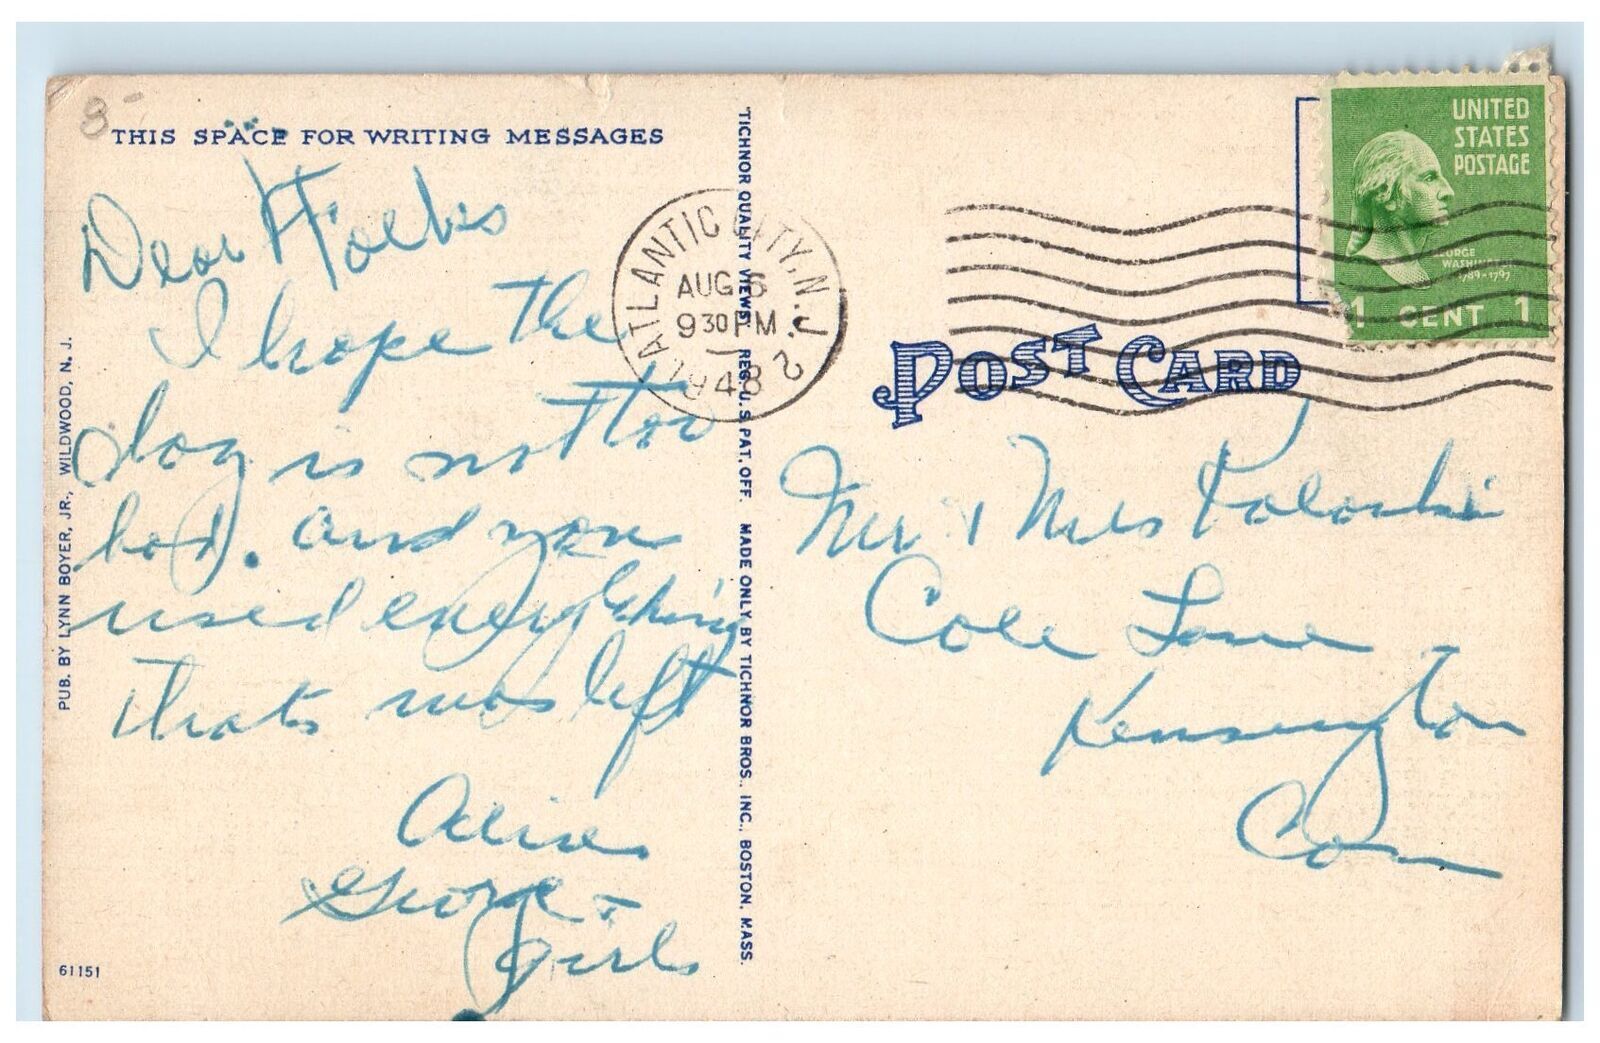 8-
THIS SPACE FOR WRITING MESSAGES
Dear Folks
I hope the
dog is not too
bad. and you
used everything
thats was left
Alice
George +
girls
PUB. BY LYNN BOYER, JR., WILDWOOD, N. J.
61151
TICHNOR QUALITY VIEWS, REG. U.S. PAT. OFF. MADE ONLY BY TICHNOR BROS., INC., BOSTON, MASS.
ATLANTIC CITY, N.J. 2
AUG 6
9 30 PM
1948
UNITED
STATES
POSTAGE
GEORGE
WASHINGTON
1789-1797
1 CENT 1
POST CARD
Mr + Mrs
Cole Lane
Kensington
Conn